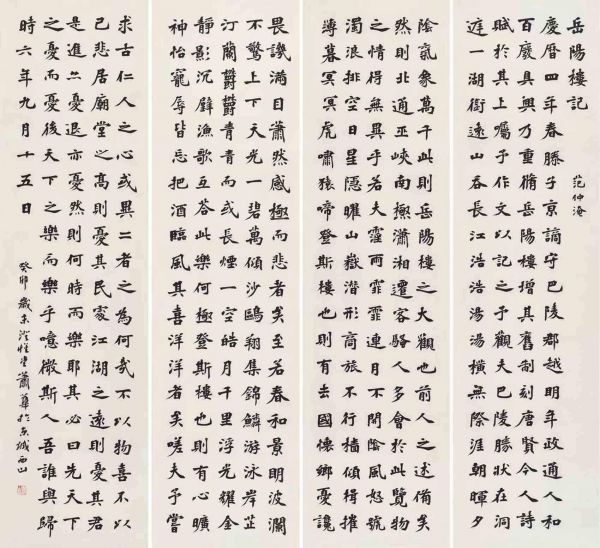 岳陽樓記
范仲淹
慶曆四年春滕子京謫守巴陵郡越明年政通人和
百廢具興乃重脩岳陽樓增其舊制刻唐賢今人詩
賦於其上屬予作文以記之予觀夫巴陵勝狀在洞
庭一湖銜遠山吞長江浩浩湯湯橫無際涯朝暉夕
陰氣象萬千此則岳陽樓之大觀也前人之述備矣
然則北通巫峽南極瀟湘遷客騷人多會於此覽物
之情得無異乎若夫霪雨霏霏連月不開陰風怒號
濁浪排空日星隱曜山嶽潛形商旅不行檣傾楫摧
薄暮冥冥虎嘯猿啼登斯樓也則有去國懷鄉憂讒
畏譏滿目蕭然感極而悲者矣至若春和景明波瀾
不驚上下天光一碧萬頃沙鷗翔集錦鱗游泳岸芷
汀蘭鬱鬱青青而或長煙一空皓月千里浮光耀金
靜影沉璧漁歌互答此樂何極登斯樓也則有心曠
神怡寵辱皆忘把酒臨風其喜洋洋者矣嗟夫予嘗
求古仁人之心或異二者之為何哉不以物喜不以
己悲居廟堂之高則憂其民處江湖之遠則憂其君
是進亦憂退亦憂然則何時而樂耶其必曰先天下
之憂而憂後天下之樂而樂乎噫微斯人吾誰與歸
時六年九月十五日
癸卯歲末澄懷堂蕭華於京城西山